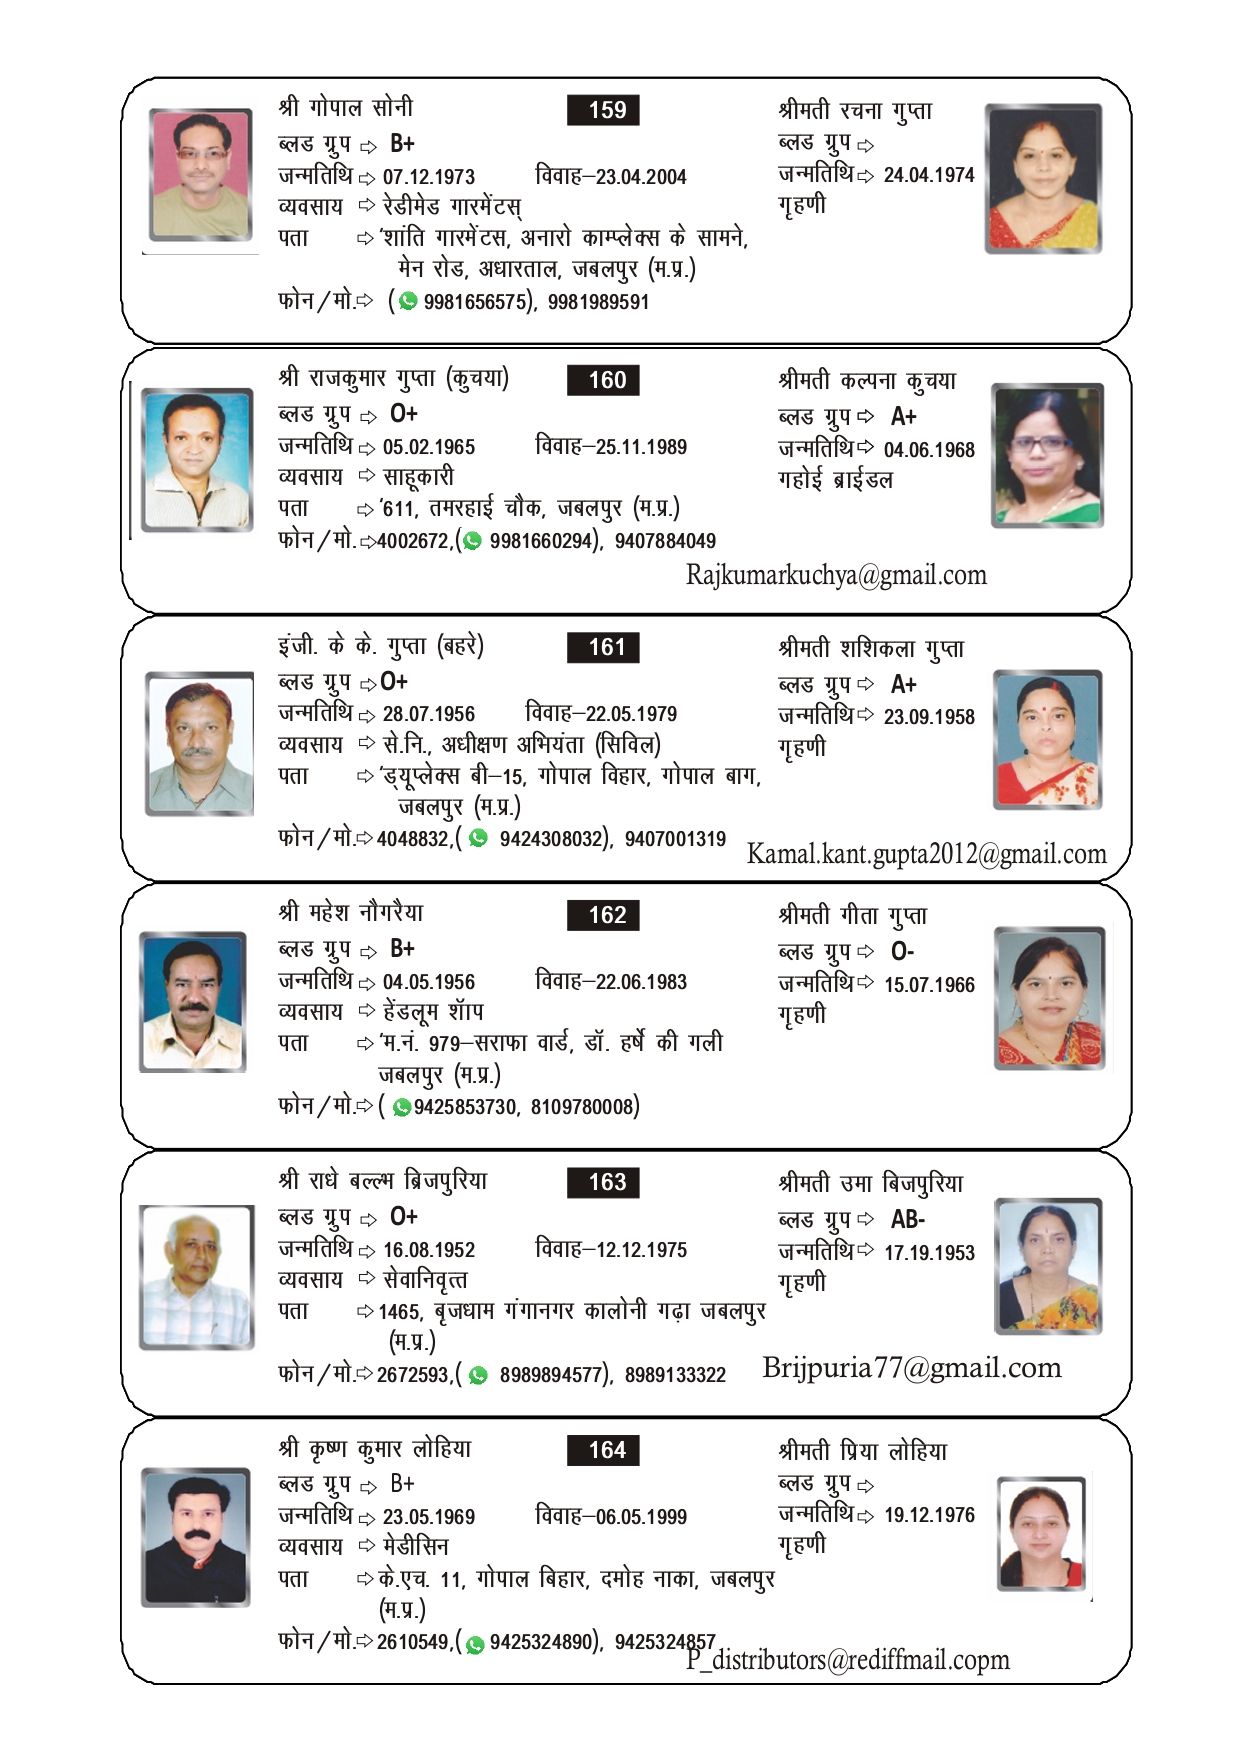 श्री गोपाल सोनी
159
ब्लड ग्रुप ⇨ B+
जन्मतिथि ⇨ 07.12.1973 विवाह–23.04.2004
व्यवसाय ⇨ रेडीमेड गारमेंटस्
पता ⇨ 'शांति गारमेंटस, अनारो काम्प्लेक्स के सामने,
मेन रोड, अधारताल, जबलपुर (म.प्र.)
फोन/मो.⇨ ( 9981656575), 9981989591
श्रीमती रचना गुप्ता
ब्लड ग्रुप ⇨
जन्मतिथि ⇨ 24.04.1974
गृहणी
श्री राजकुमार गुप्ता (कुचया)
160
ब्लड ग्रुप ⇨ O+
जन्मतिथि ⇨ 05.02.1965 विवाह–25.11.1989
व्यवसाय ⇨ साहूकारी
पता ⇨ '611, तमरहाई चौक, जबलपुर (म.प्र.)
फोन/मो.⇨4002672,( 9981660294), 9407884049
श्रीमती कल्पना कुचया
ब्लड ग्रुप ⇨ A+
जन्मतिथि ⇨ 04.06.1968
गहोई ब्राईडल
Rajkumarkuchya@gmail.com
इंजी. के के. गुप्ता (बहरे)
161
ब्लड ग्रुप ⇨O+
जन्मतिथि ⇨ 28.07.1956 विवाह–22.05.1979
व्यवसाय ⇨ से.नि., अधीक्षण अभियंता (सिविल)
पता ⇨ 'ड्यूप्लेक्स बी–15, गोपाल विहार, गोपाल बाग,
जबलपुर (म.प्र.)
फोन/मो.⇨4048832,( 9424308032), 9407001319
श्रीमती शशिकला गुप्ता
ब्लड ग्रुप ⇨ A+
जन्मतिथि ⇨ 23.09.1958
गृहणी
Kamal.kant.gupta2012@gmail.com
श्री महेश नौगरैया
162
ब्लड ग्रुप ⇨ B+
जन्मतिथि ⇨ 04.05.1956 विवाह–22.06.1983
व्यवसाय ⇨ हेंडलूम शॅाप
पता ⇨ 'म.नं. 979–सराफा वार्ड, डॉ. हर्षे की गली
जबलपुर (म.प्र.)
फोन/मो.⇨( 9425853730, 8109780008)
श्रीमती गीता गुप्ता
ब्लड ग्रुप ⇨ O-
जन्मतिथि ⇨ 15.07.1966
गृहणी
श्री राधे बल्ल्भ ब्रिजपुरिया
163
ब्लड ग्रुप ⇨ O+
जन्मतिथि ⇨ 16.08.1952 विवाह–12.12.1975
व्यवसाय ⇨ सेवानिवृत्त
पता ⇨1465, बृजधाम गंगानगर कालोनी गढ़ा जबलपुर
(म.प्र.)
फोन/मो.⇨2672593,( 8989894577), 8989133322
श्रीमती उमा बिजपुरिया
ब्लड ग्रुप ⇨ AB-
जन्मतिथि ⇨ 17.19.1953
गृहणी
Brijpuria77@gmail.com
श्री कृष्ण कुमार लोहिया
164
ब्लड ग्रुप ⇨ B+
जन्मतिथि ⇨ 23.05.1969 विवाह–06.05.1999
व्यवसाय ⇨ मेडीसिन
पता ⇨के.एच. 11, गोपाल बिहार, दमोह नाका, जबलपुर
(म.प्र.)
फोन/मो.⇨2610549,( 9425324890), 9425324857
श्रीमती प्रिया लोहिया
ब्लड ग्रुप ⇨
जन्मतिथि ⇨ 19.12.1976
गृहणी
P_distributors@rediffmail.copm